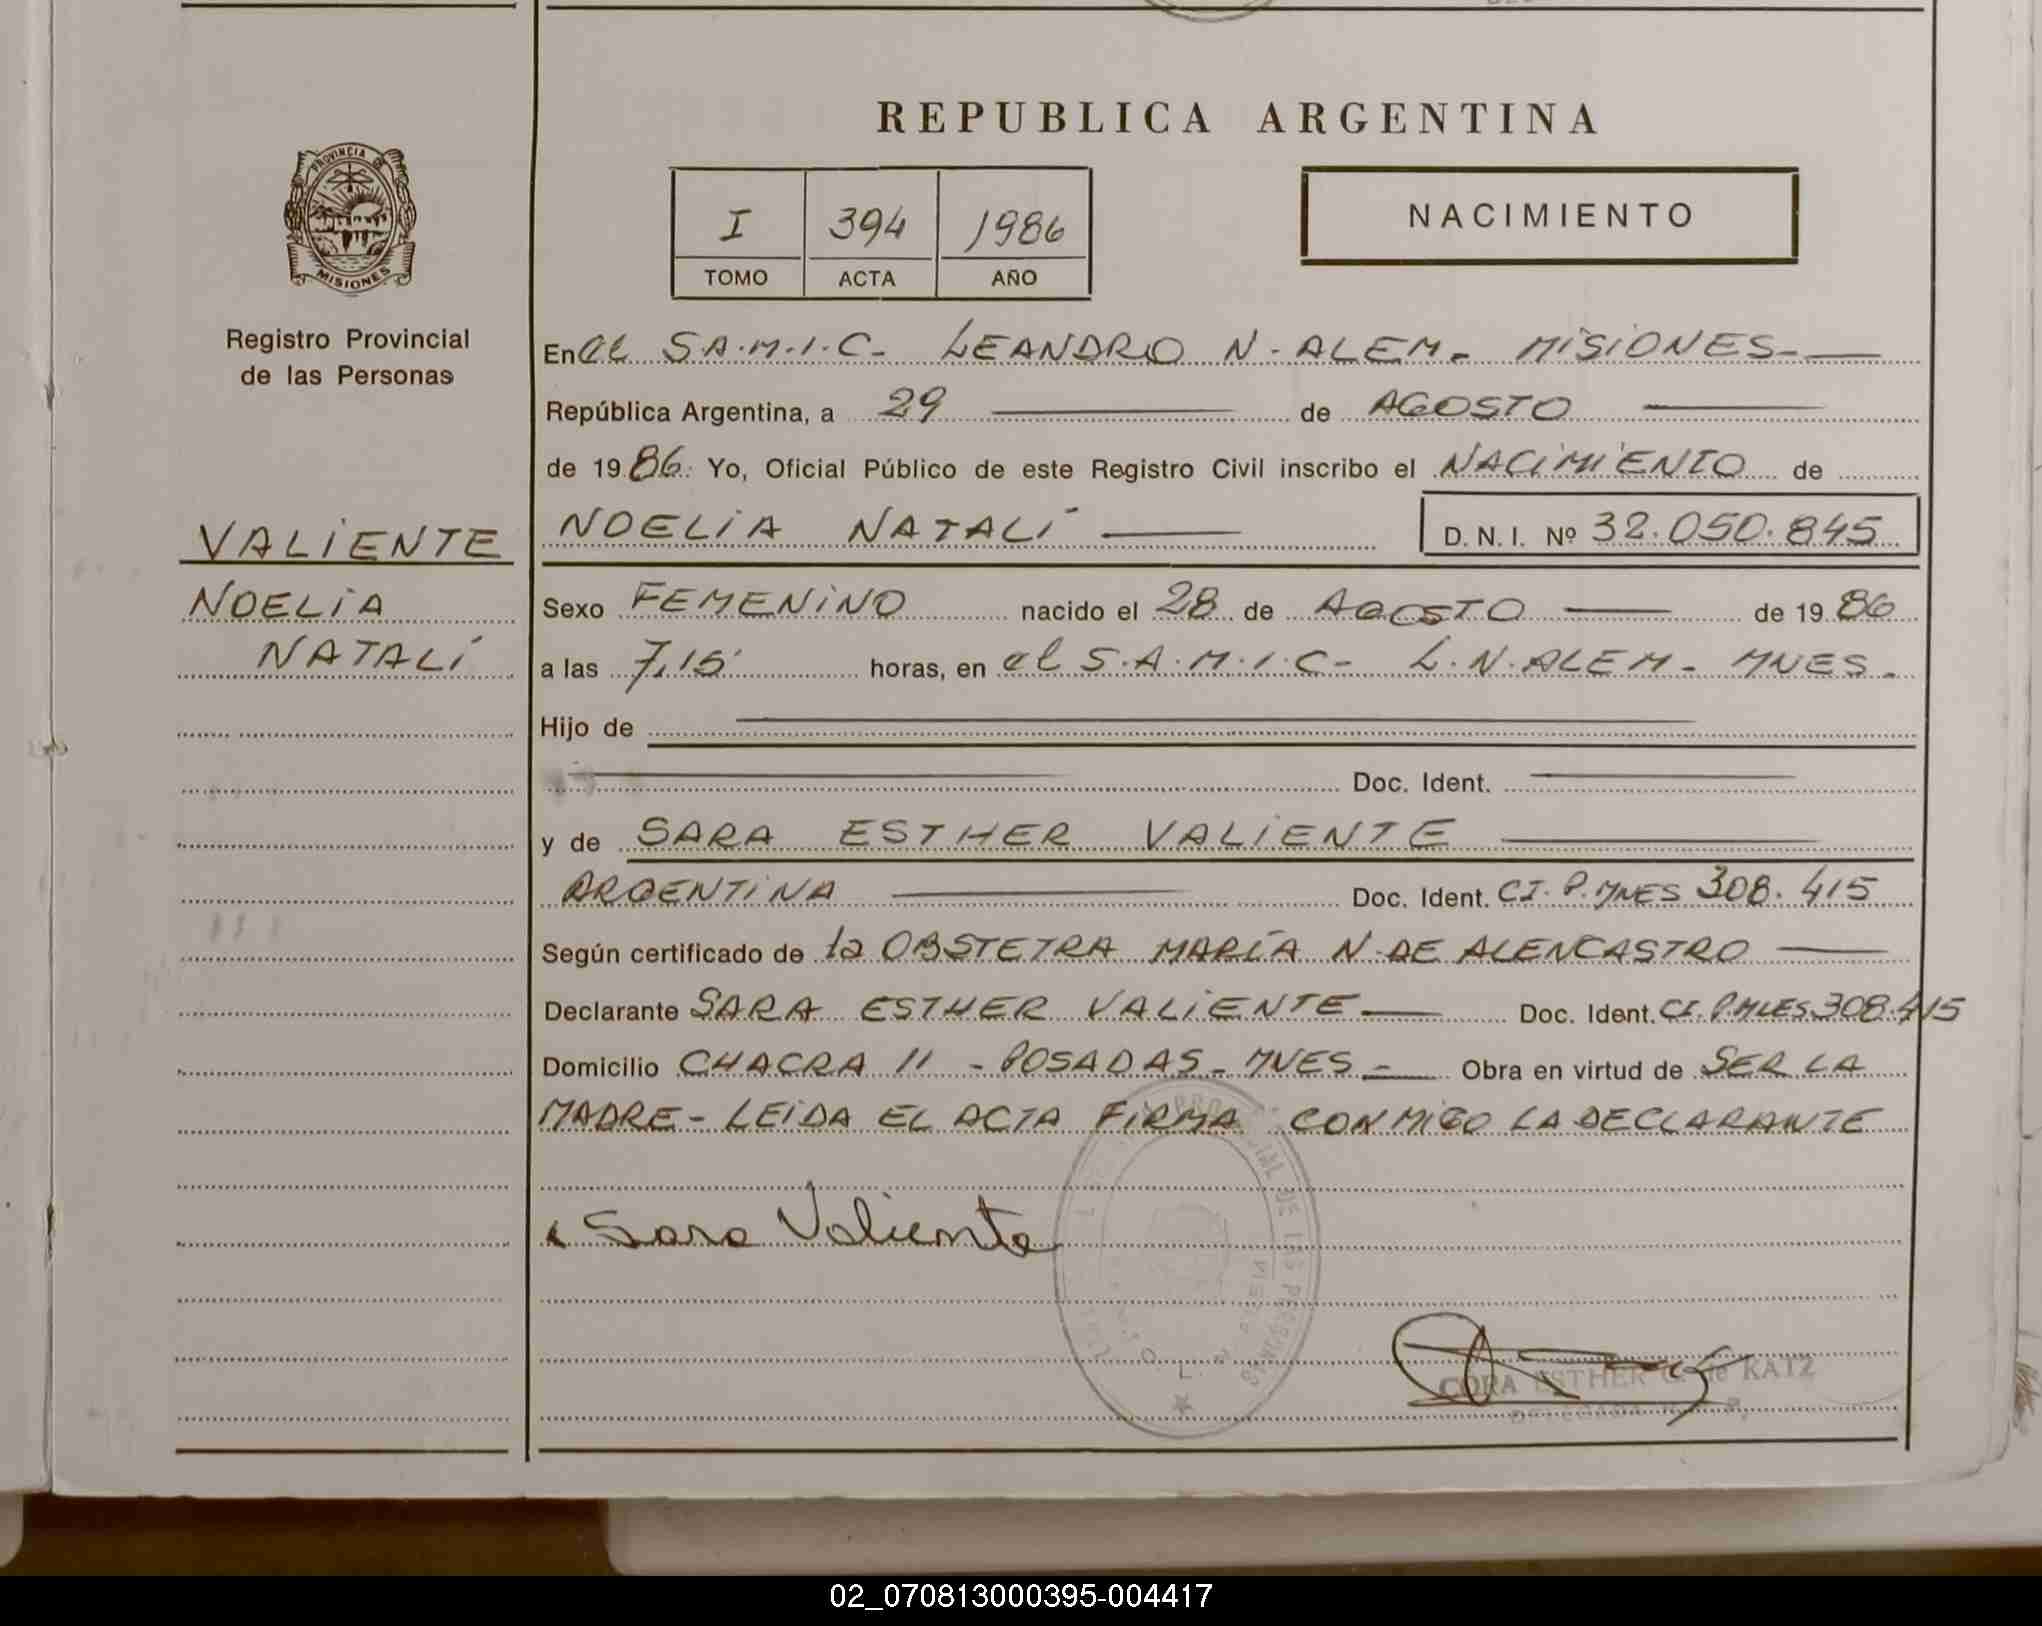 REPUBLICA ARGENTINA
PROVINCIA DE
MISIONES
Registro Provincial
de las Personas
I 394 1986
TOMO ACTA AÑO
NACIMIENTO
En el S.A.M.I.C- LEANDRO N- ALEM- MISIONES-
República Argentina, a 29 de AGOSTO
de 1986. Yo, Oficial Público de este Registro Civil inscribo el NACIMIENTO de
VALIENTE
NOELIA
NATALÍ
NOELIA NATALÍ D.N.I. Nº 32.050.845
Sexo FEMENINO nacido el 28 de AGOSTO de 1986
a las 7,15 horas, en el S.A.M.I.C- L.N.ALEM- MNES-
Hijo de
Doc. Ident.
y de SARA ESTHER VALIENTE
ARGENTINA Doc. Ident. CI. P. MNES 308.415
Según certificado de la OBSTETRA MARÍA N-DE ALENCASTRO
Declarante SARA ESTHER VALIENTE Doc. Ident. CI. P.MNES.308.415
Domicilio CHACRA 11 - POSADAS- MNES- Obra en virtud de SER LA
MADRE- LEIDA EL ACTA FIRMA CONMIGO LA DECLARANTE
Sara Valiente
CORA ESTHER G. de KATZ
02_070813000395-004417